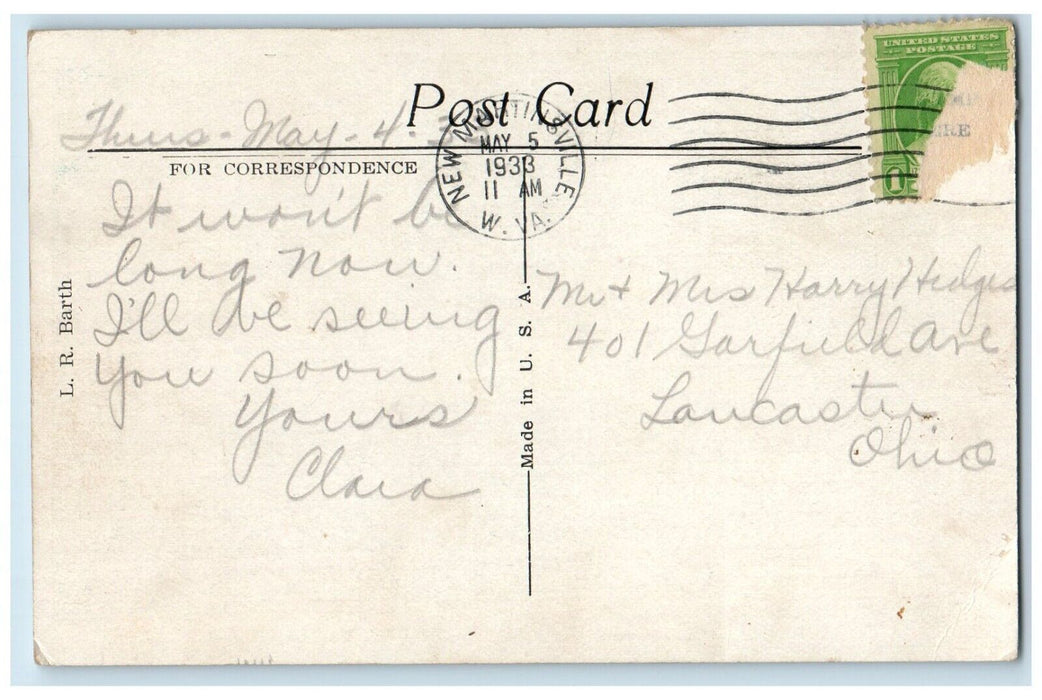 Post Card
UNITED STATES
POSTAGE
1
ERE
Thurs - May - 4 - 3
NEW MARTINSVILLE
MAY 5
1933
11 AM
W. VA.
FOR CORRESPONDENCE
It won't be
long now.
I'll be seeing
you soon.
Yours
Clara
L. R. Barth
Made in U. S. A.
Mr + Mrs Harry Hedges
401 Garfield Ave
Lancaster
Ohio